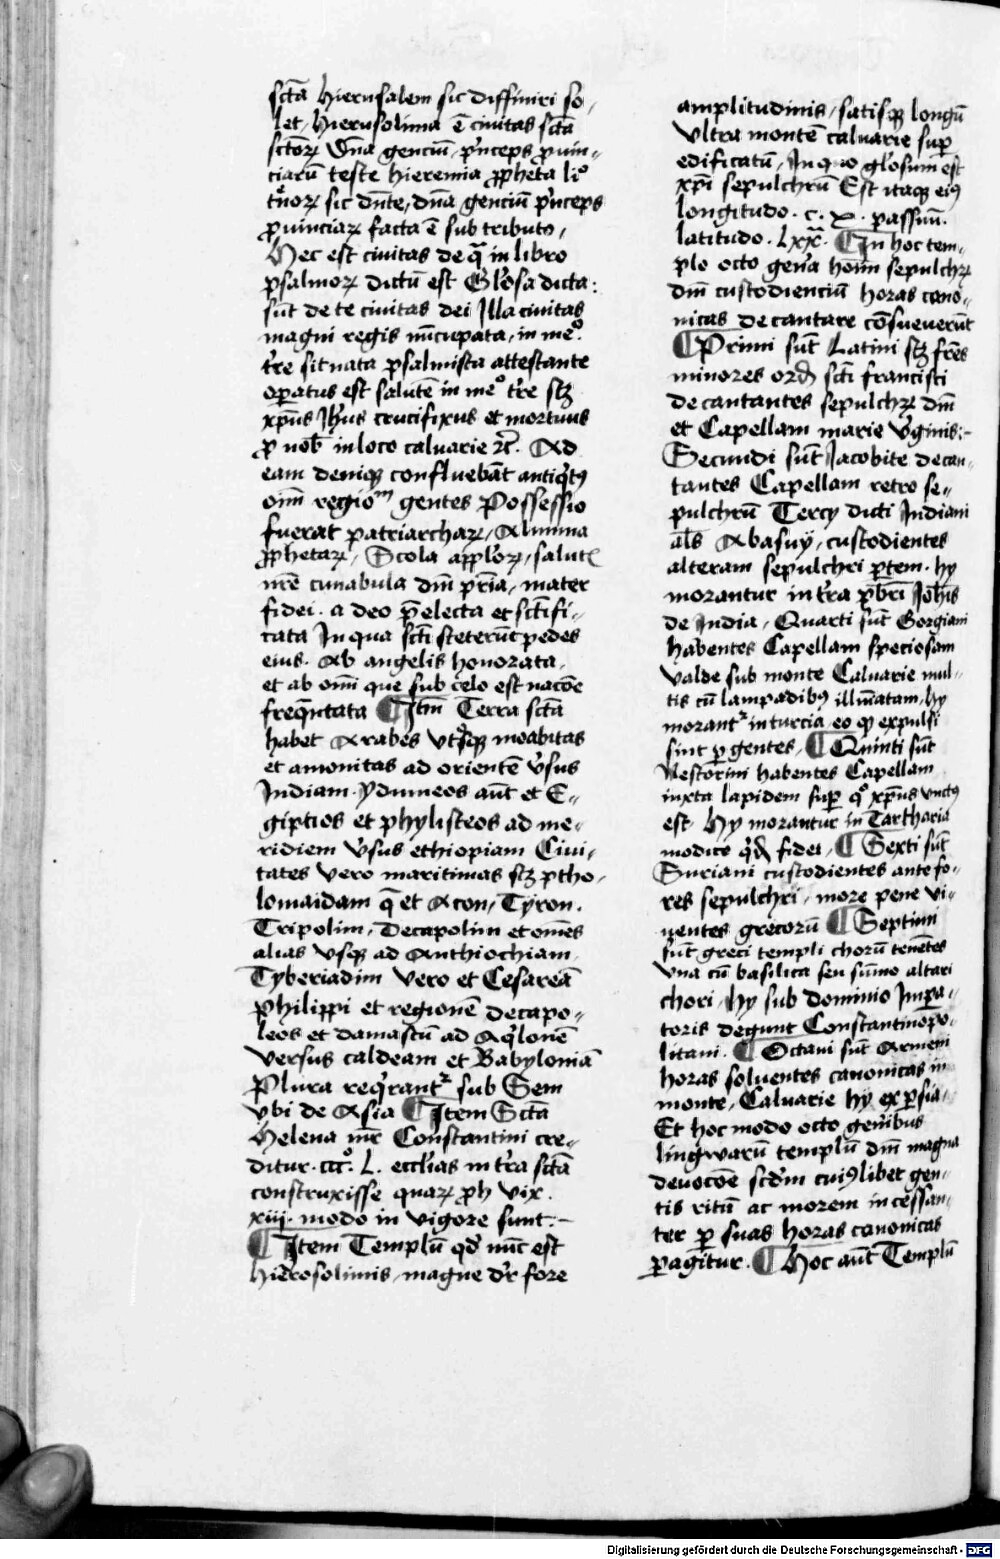 sctā Hierusalem sic diffiniri so-
let, Hierusolima ē ciuitas sctā
sctōꝝ dn̄a genciū, prīnceps prouin-
ciarū teste Hieremia ꝓpheta li°
sic dn̄te, dn̄a genciū prīnceps
ꝓuinciaꝝ facta ē sub tributo,
Hec est ciuitas de qua in libro
psalmoꝝ dictū est Glōsa dicta:
sūt de te ciuitas dei Illa ciuitas
magni regis nūcupata, in me°.
tr̄e situata psalmista attestante
oꝑatus est salutē in me° tr̄e scꝫ
xp̄us Ih̄us crucifixus et mortuus
ꝓ nob̄ in loco caluarie ⁊c̄. Ad
eam deniqꝫ confluebāt antiqtꝰ
om̄i regioⁿⁱˢ gentes Possessio
fuerat patriarchaꝝ, Alumna
ꝓphetaꝝ, Scola app̄loꝝ, salutꝭ
nr̄e cunabula dn̄i pr̄ia, mater
fidei. a deo p̄electa et sctīfi-
cata In qua sctī steterūt pedes
eius. Ab angelis honorata,
et ab om̄i que sub celo est nacōe
freqn̄tata ¶ Itm̄ Terra sctā
habet Arabes vtrosqꝫ moabitas
et amonitas ad orientē v̄sus
Indiam. ydumeos aūt et E-
giptios et phylisteos ad me-
ridiem v̄sus ethiopiam Ciui-
tates vero maritimas scꝫ ptho-
lomaidam q̄ et Acon, Tyron.
Tripolim, Decapolim et om̄es
alias vsqꝫ ad Anthiochiam,
Tyberiadim vero et Cesareā
philippi et regionē decapo-
leos et damascū ad Aqlonē
versus caldeam et Babyloniā
Plura reqrant᷑ sub Sem
vbi de Asia ¶ Item Sctā
Helena mr̄ Constantini cre-
ditur. ccc°. L. eccl̄ias in tr̄a sctā
construxisse quaꝝ ꝓh vix.
xiij. modo in vigore sunt.-
¶ Item Templū qd̄ nūc est
hierosolimis, magne dr̄ fore
amplitudinis, satisqꝫ longū
vltra montē caluarie suꝑ
edificatū, In quo gl̄osum est
xpī sepulchrū Est itaqꝫ eiꝰ
longitudo. c. x. passuū.
latitudo. Lxx. ¶ In hoc tem-
plo octo gen̄a hoīm sepulchꝝ
dn̄i custodienciū horas cano-
nicas decantare cōsueuerūt
¶ Primi sūt Latini scꝫ fr̄es
minores ord̄ sctī francisci
decantantes sepulchꝝ dn̄i
et Capellam marie v̄ginis:-
Secundi sūt Jacobite decan-
tantes Capellam retro se-
pulchrū Tercy dicti Indiani
al̄s Abasuÿ, custodientes
alteram sepulchri ꝑtem. hy
morantur in tr̄a pb̄ri Ioh̄is
de India, Quarti sūt Gorgiani
habentes Capellam speciosam
valde sub monte Caluarie mul-
tis cū lampadibꝰ illuīatam, hy
morant᷑ in turcia, eo qꝫ expulsi
sint ꝑ gentes, ¶ Quinti sūt
Nestorini habentes Capellam
iuxta lapidem suꝑ q° xp̄us vnctꝰ
est. Hy morantur in Tarthoria
modice fidei, ¶ Sexti sūt
Suriani custodientes ante fo-
res sepulchri, more pene vi-
uentes grecorū ¶ Septimi
sūt greci templi chorū tenētes
vna cū basilica seu sūmo altari
chori, hy sub dominio Impa-
toris degunt Constantinopo-
litani. ¶ Octaui sūt Armeni
horas soluentes canonicas in
monte, Caluarie hy ex ꝑsia,
Et hoc modo octo genibus
lingwarū templū dn̄i magna
deuocōe scd̄m cuiꝰlibet gen-
tis ritū ac morem incessan-
ter ꝑ suas horas canonicas
ꝑagitur. ¶ Hoc aūt Templū
Digitalisierung gefördert durch die Deutsche Forschungsgemeinschaft - DFG